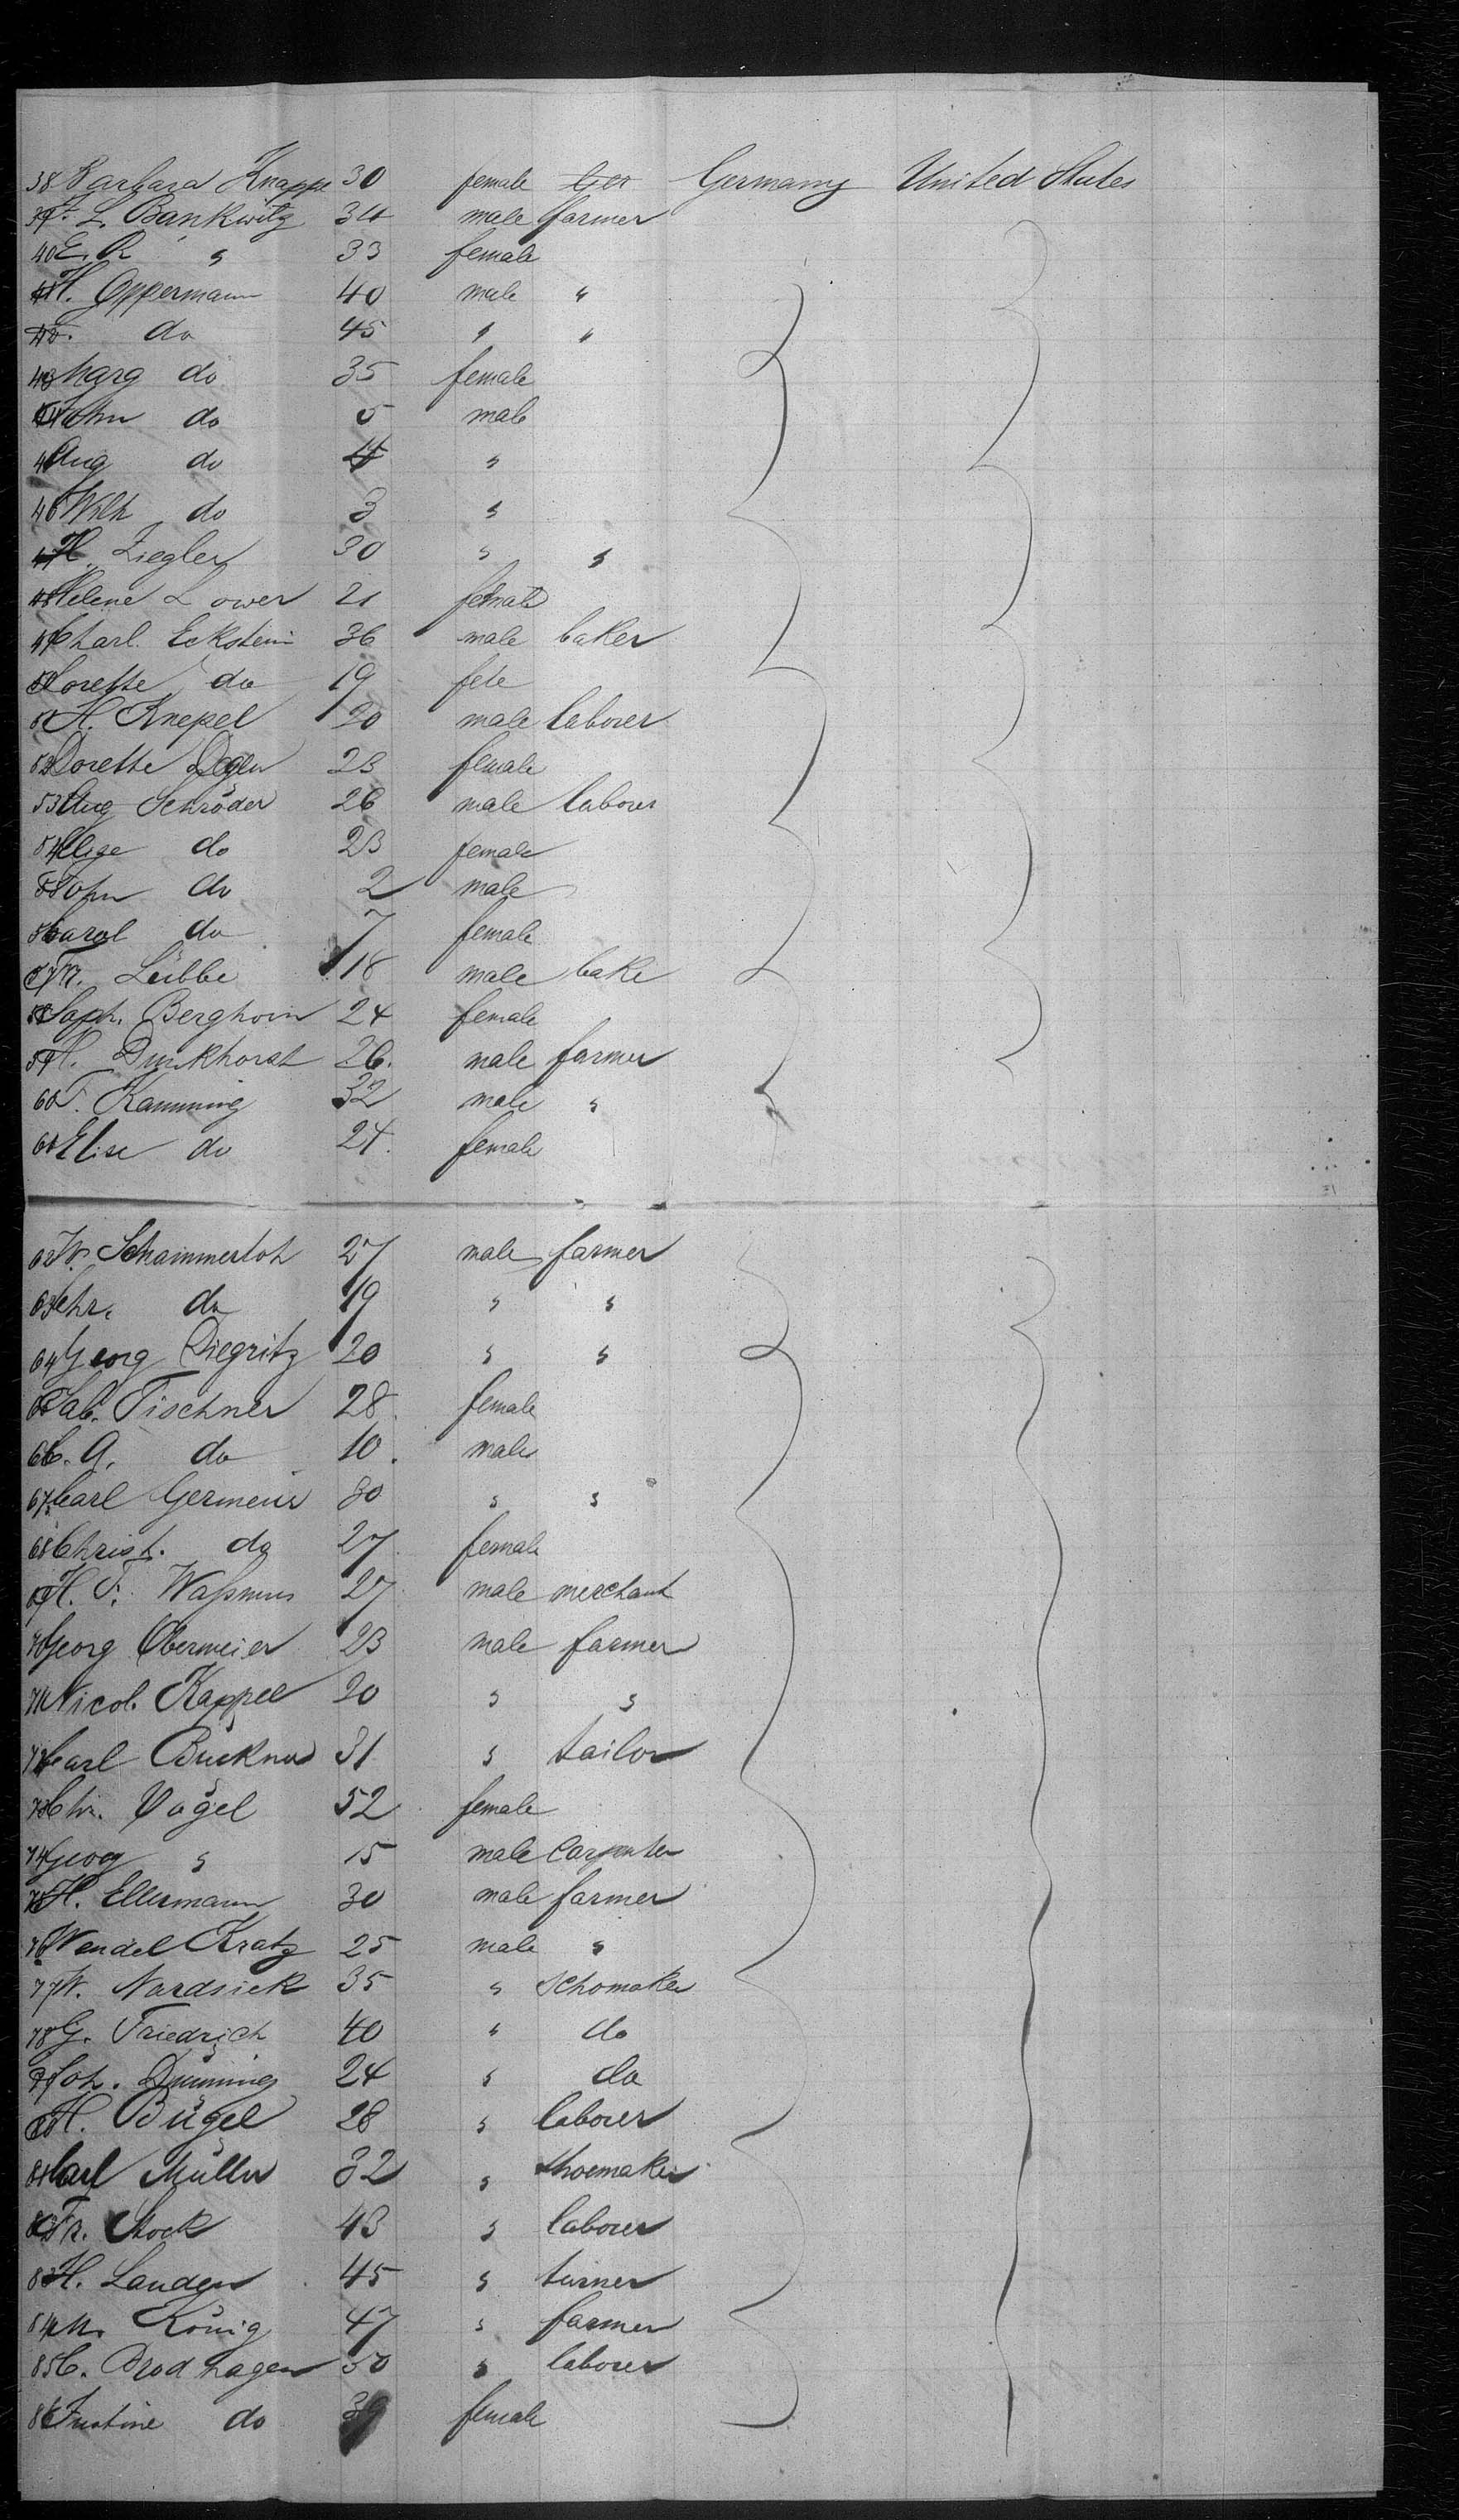 38 Barbara Knappe 30 female Ger Germany United States
39 F. L. Bankwitz 34 male farmer
40 E. R " 33 female
41 H. Oppermann 40 male "
42 do 45 " "
43 Marg do 35 female
44 John do 5 male
45 Aug do 4 "
46 Wilh do 3 "
47 H. Ziegler 30 " "
48 Helene Lower 21 female
49 Charl. Eckstein 36 male baker
50 Dorette do 19 fele
51 H. Knepel 20 male laborer
52 Dorette Degen 23 female
53 Aug Schröder 26 male laborer
54 Elise do 23 female
55 John do 2 male
56 Carol do 7 female
57 Fr. Lübbe 18 male bake
58 Soph. Berghorn 24 female
59 H. Dunkhorst 26. male farmer
60 F. Kamming 32 male "
61 Elise do 24. female
62 W. Schammerloh 27 male farmer
63 Chr. do 19 " "
64 Georg Diegritz 20 " "
65 Sab. Tischner 28. female
66 C. A. do 10. male
67 Carl Germeur 30 " "
68 Christ. do 27. female
69 H. F. Waßmus 27 male merchant
70 Georg Obermeier 23 male farmer
71 Nicol. Kappel 20 " "
72 Carl Bückner 31 " tailor
73 Chr. Vogel 52 female
74 Georg " 15 male Carpenter
75 H. Ellermann 30 male farmer
76 Wendel Kratz 25 male "
77 W. Nardsiek 35 " Schomaker
78 G. Friedrich 40 " do
79 Joh. Dümming 24 " do
80 H. Bügel 28 " laborer
81 Carl Müller 32 " shoemaker
82 Fr. Stock 43 " laborer
83 H. Landgen 45 " turner
84 M. König 47 " farmer
85 C. Brodhagen 50 " laborer
86 Justine do 39 female